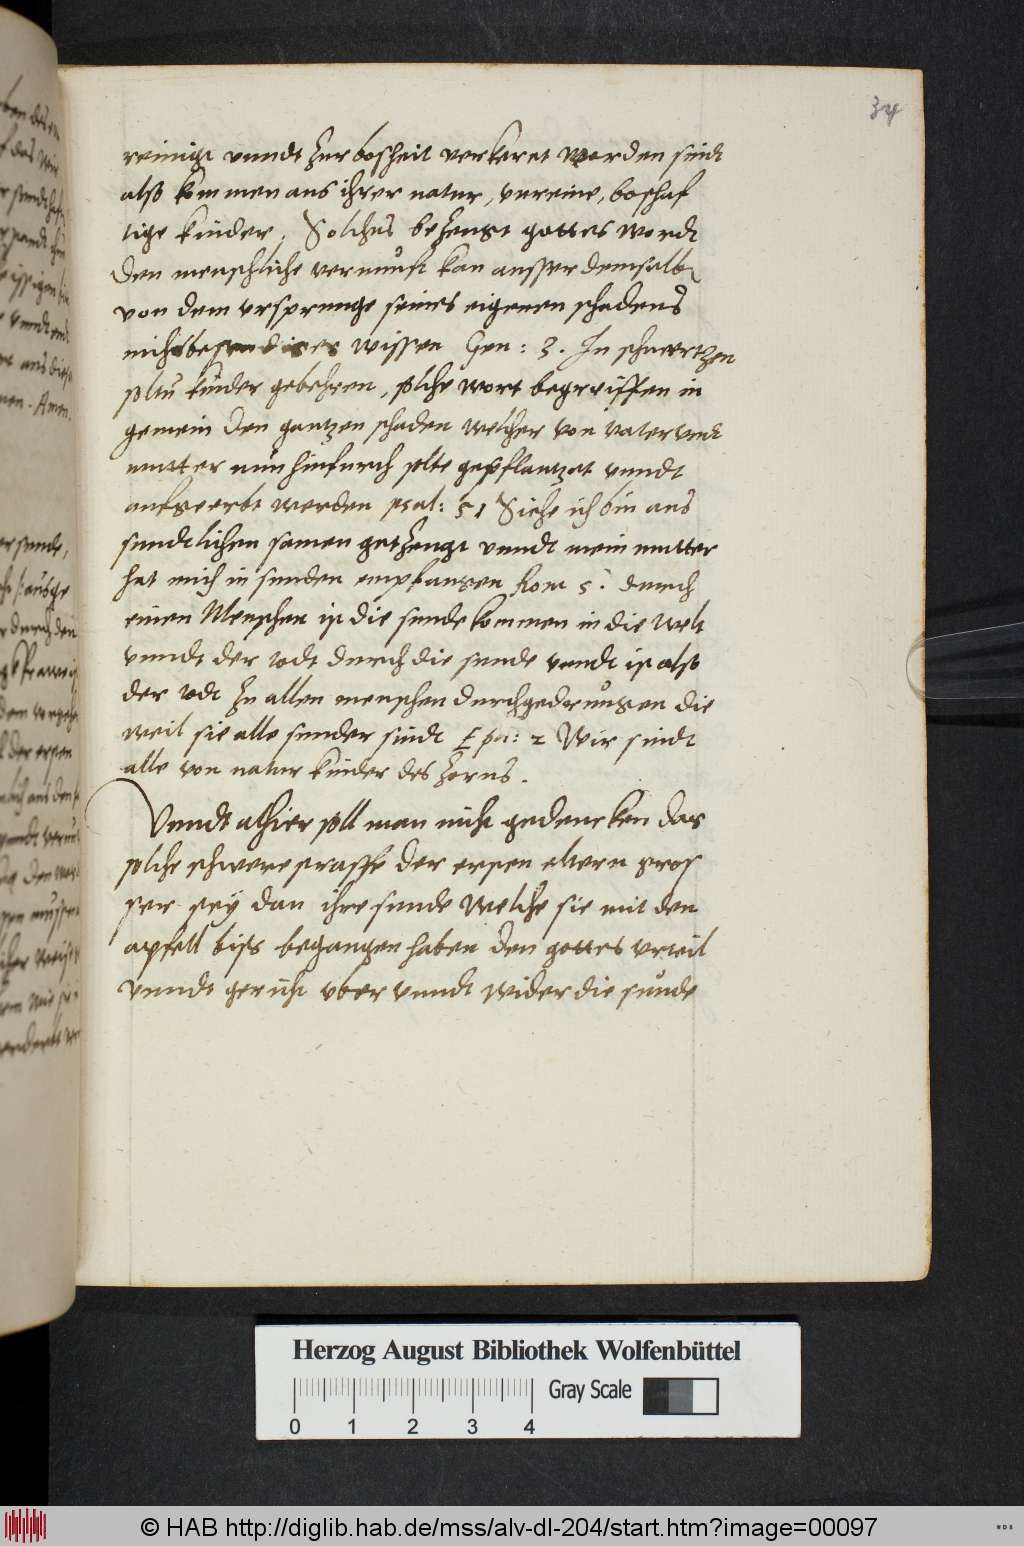 34
reinigt vnndt zur bosheit verkeret worden sindt
also kommen aus ihrer natur, vnreine, boshaf
tige kinder, Solches bezeugt gottes wordt
den menschliche vernunft kan ausser demselb
von dem vrsprunge seines eigenen schadens
nichts wissen Gen: 3. In schmertzen
soltu kinder gebehren, solche wort begreiffen in
gemein den gantzen schaden welcher von vater vndt
mutter nun hinfurch solte gepflantzet vnndt
aufgeerbt werden psal: 51 Siehe ich bin aus
sundtlichen samen getzeugt vnndt mein mutter
hat mich in sunden empfangen Rom 5. durch
einen Menschen ist die sunde kommen in die Welt
vnndt der todt durch die sunde vnndt ist also
der todt zu allen menschen durchgedrungen die
weil sie alle sunder sindt Eph: 2 Wir sindt
alle von natur kinder des zorns.
Vnndt alhier soll man nicht gedencken das
solche schwere straffe der ersten eltern gros
ser sey dan ihre sunde welche sie mit den
apfell biss begangen haben den gottes vrteil
vnndt gericht vber vnndt wider die sunde
Herzog August Bibliothek Wolfenbüttel
Gray Scale
0 1 2 3 4
© HAB http://diglib.hab.de/mss/alv-dl-204/start.htm?image=00097